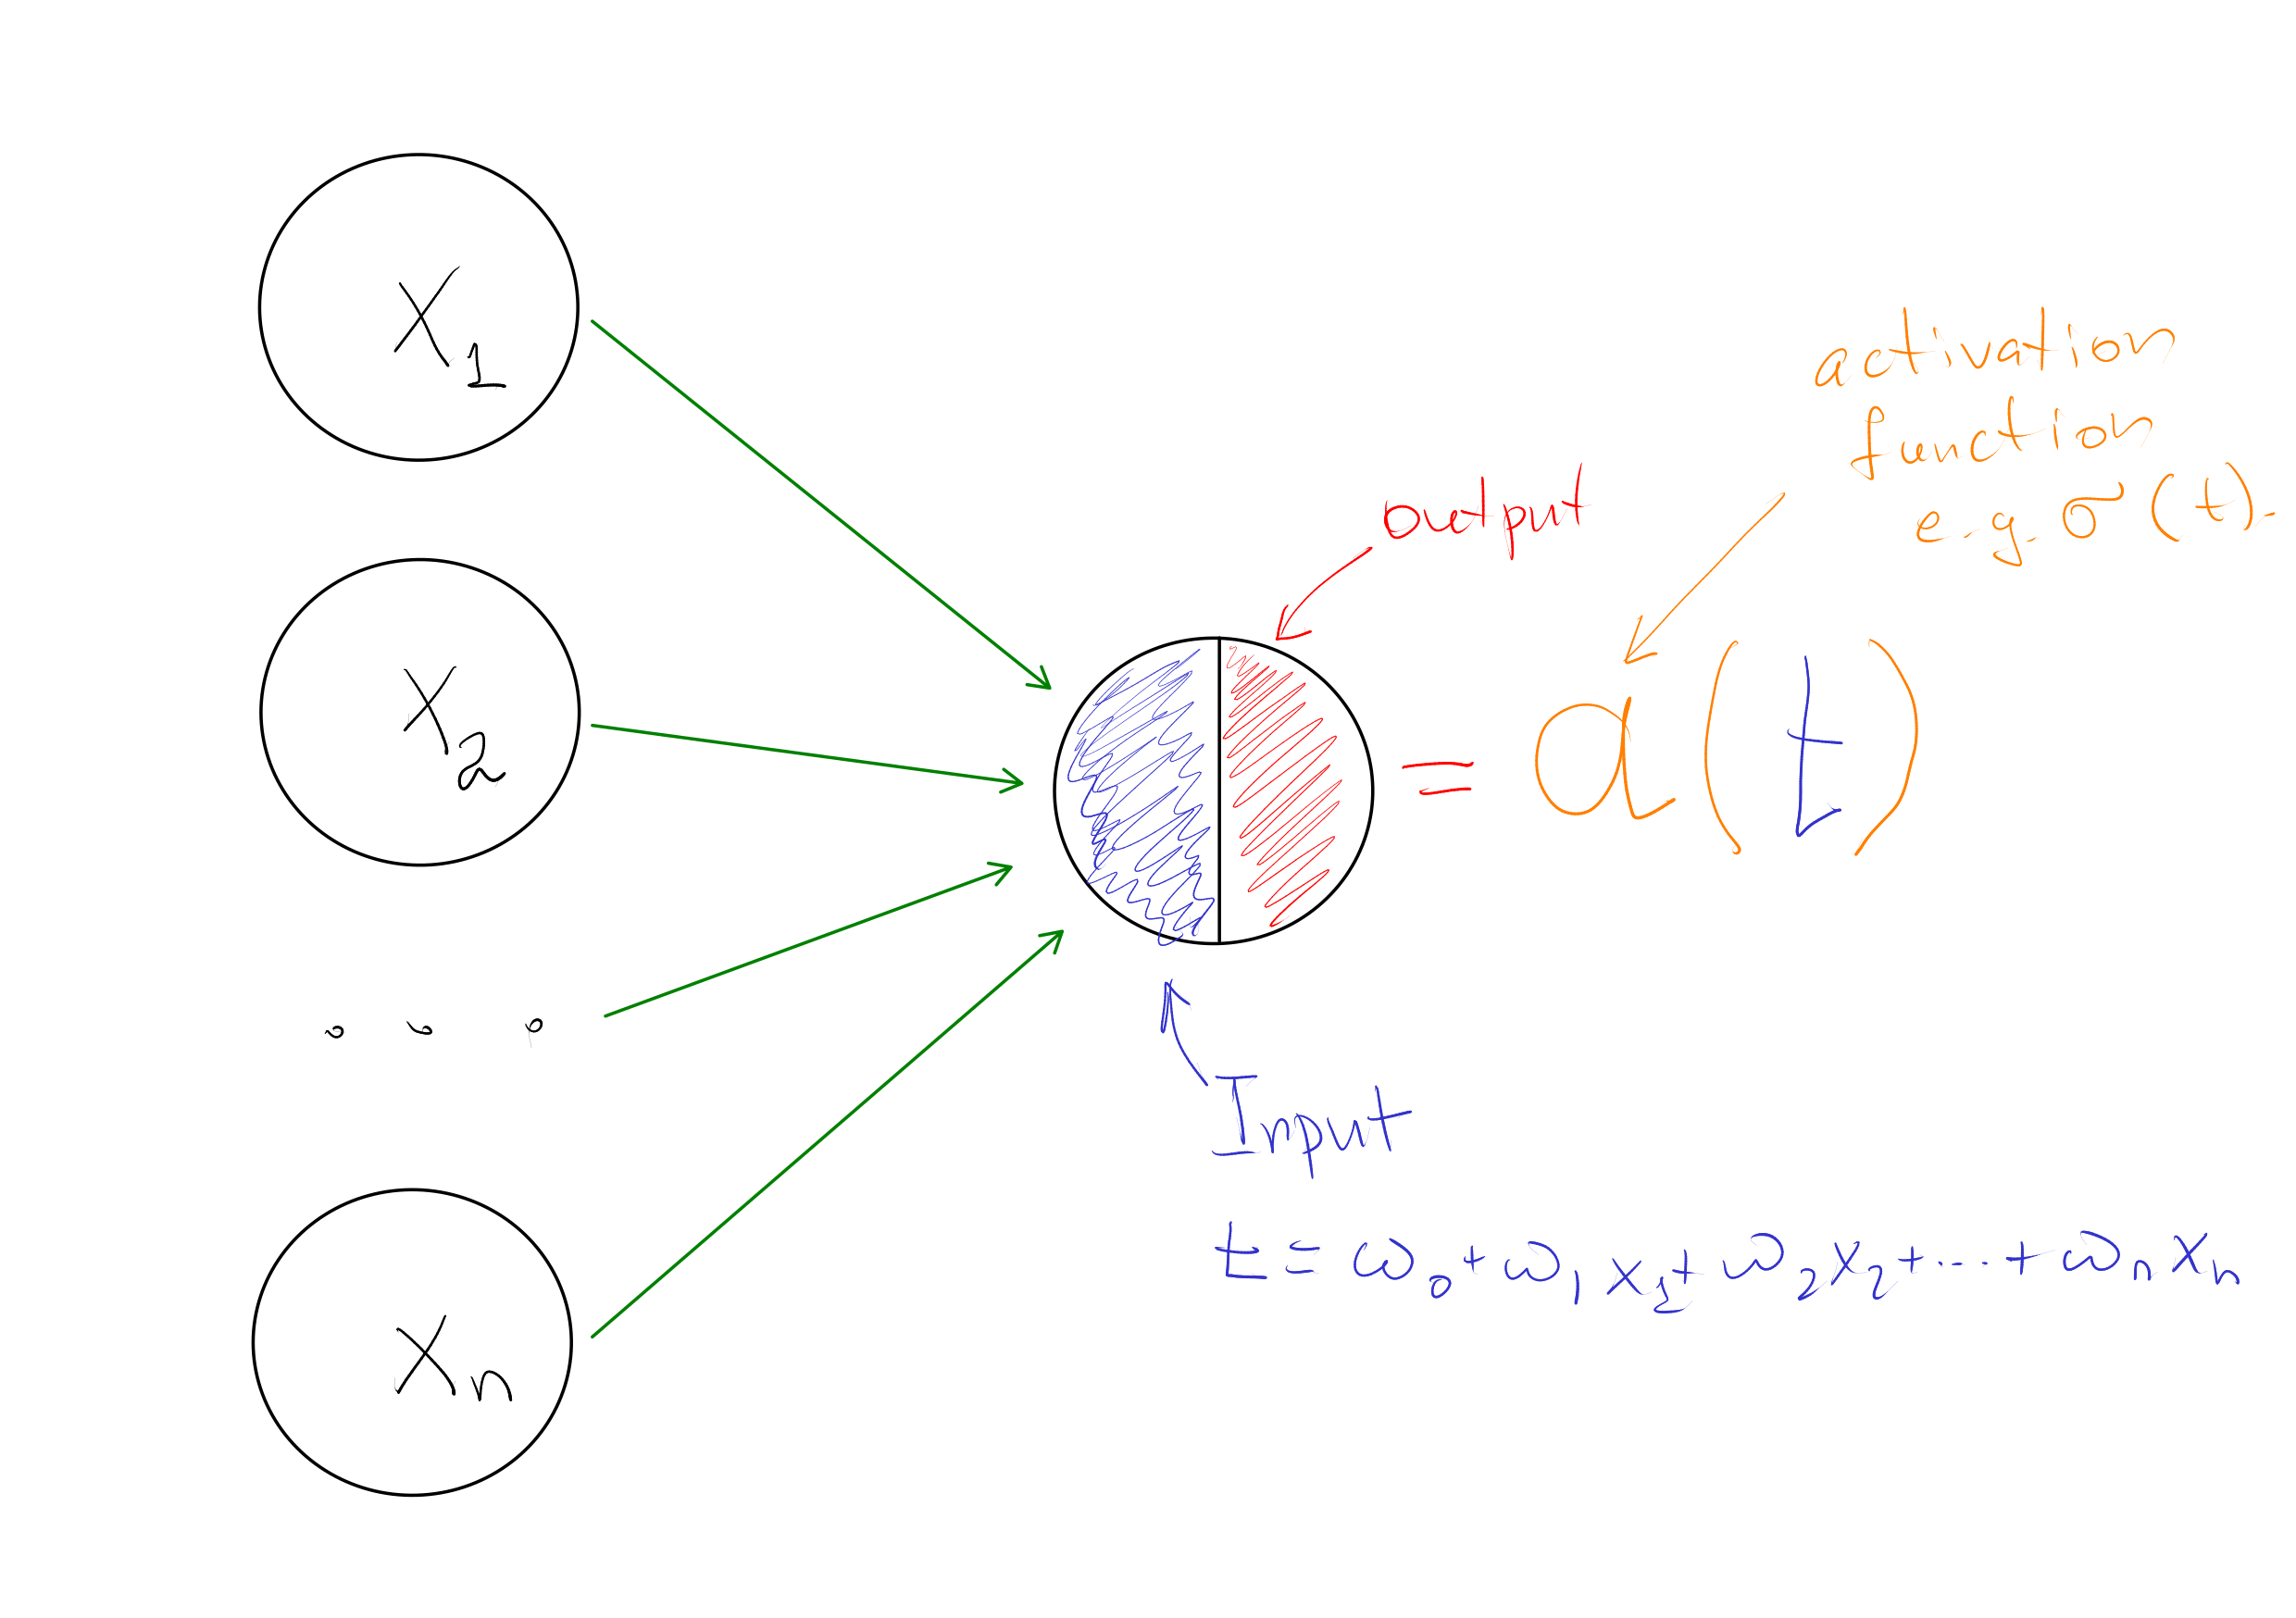 x₁
x₂
...
xₙ
output
= a(t)
activation
function
e.g. σ(t).
Input
t = ω₀+ω₁x₁+ω₂x₂+...+ωₙxₙ